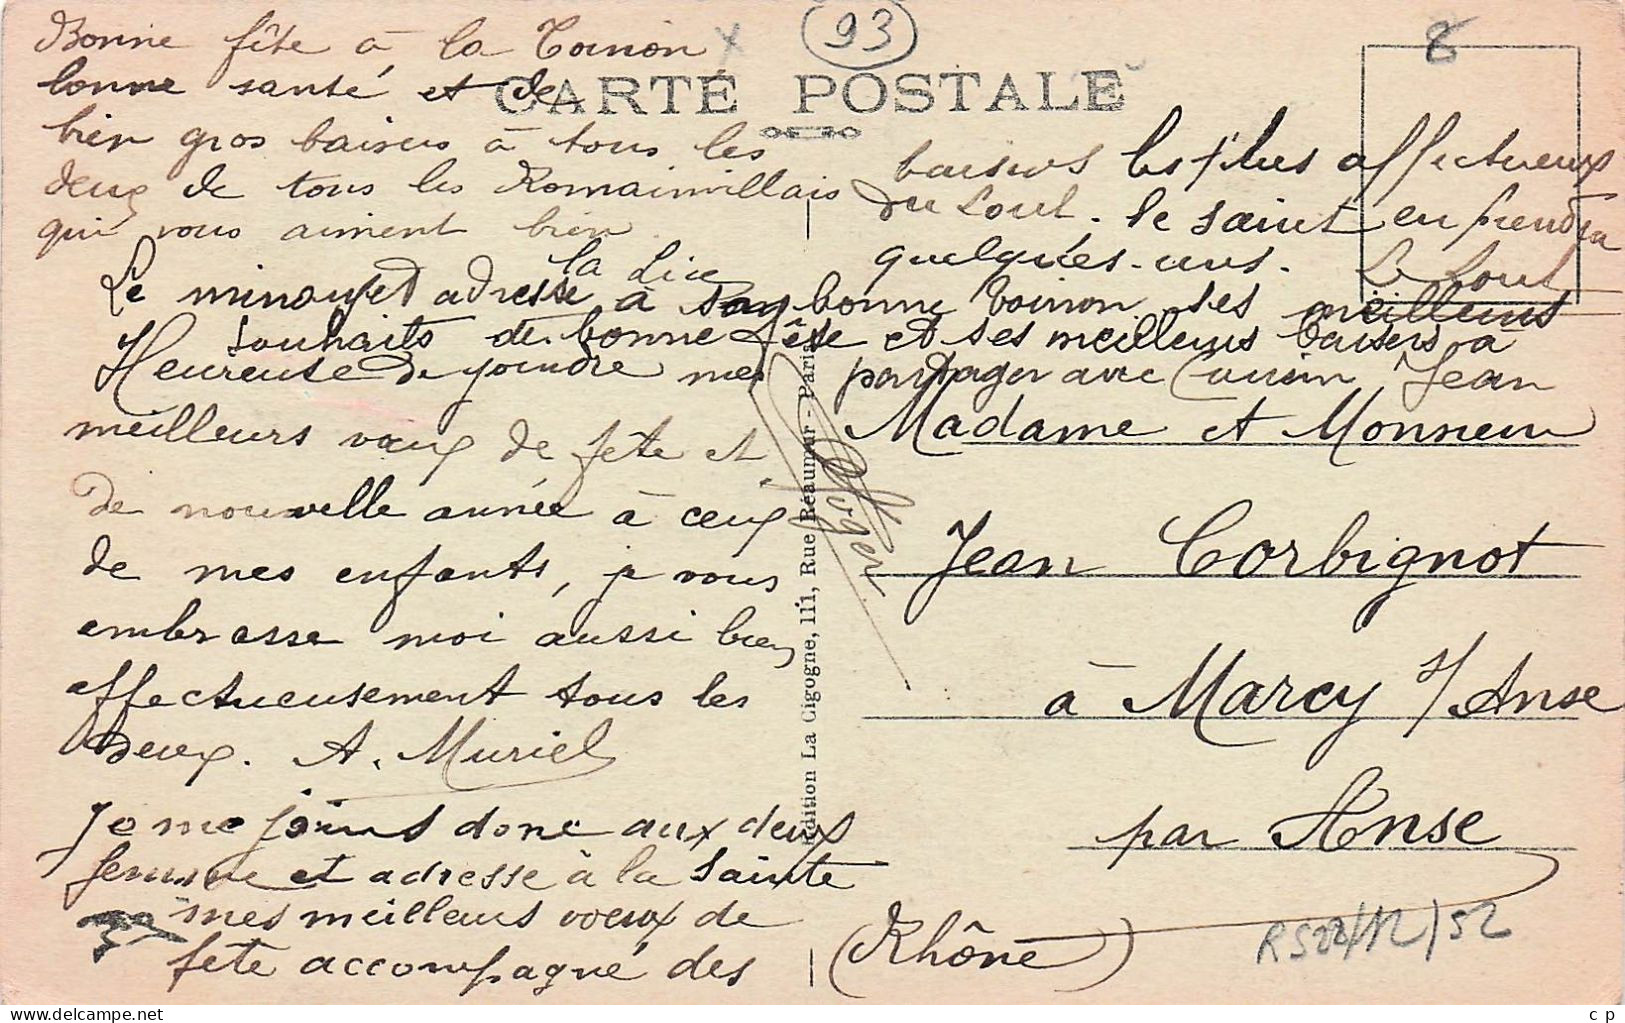 Bonne fête à la Toinon
bonne santé et de
bien gros baisers à tous les
deux de tous les Romainvillais
qui vous aiment bien.
la Lice
Le minoufet adresse à bonne Toinon ses meilleurs
souhaits de bonne fête et ses meilleurs baisers à
partager avec Cousin Jean
Heureuse de joindre mes
meilleurs vœux de fête et
de nouvelle année à ceux
de mes enfants, je vous
embrasse moi aussi bien
affectueusement tous les
deux. A. Muriel
Je me joins donc aux deux
femme et adresse à la sainte
mes meilleurs voeux de
fête accompagné des
93
8
CARTE POSTALE
baisers les plus affectueux
du Loul. le saint en prendra
quelqués-uns.
Le Loul
Roger
Edition La Cigogne, 111, Rue Réaumur - Paris
Madame et Monsieur
Jean Corbignot
à Marcy s/Anse
par Anse
(Rhône)
/12/52
delcampe.net
c p